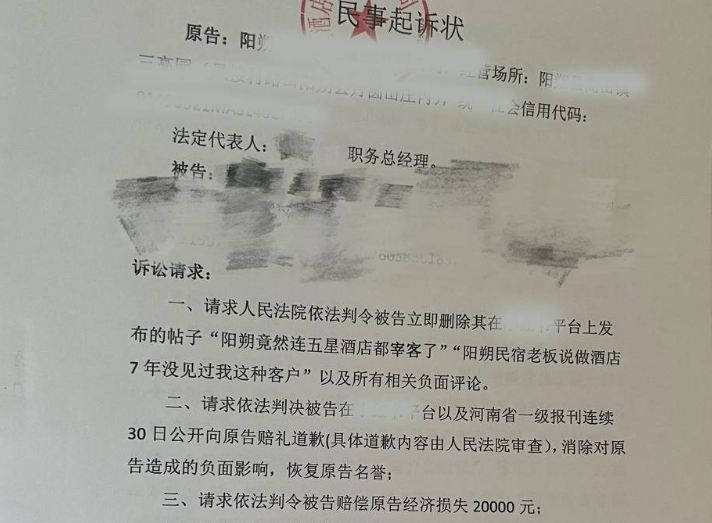 民事起诉状
原告：阳朔
营场所：阳
社会信用代码：
法定代表人： 职务总经理。
被告：
诉讼请求：
一、请求人民法院依法判令被告立即删除其在 平台上发
布的帖子“阳朔竟然连五星酒店都宰客了”“阳朔民宿老板说做酒店
7 年没见过我这种客户”以及所有相关负面评论。
二、请求依法判决被告在 平台以及河南省一级报刊连续
30 日公开向原告赔礼道歉(具体道歉内容由人民法院审查)，消除对原
告造成的负面影响，恢复原告名誉；
三、请求依法判令被告赔偿原告经济损失 20000 元；